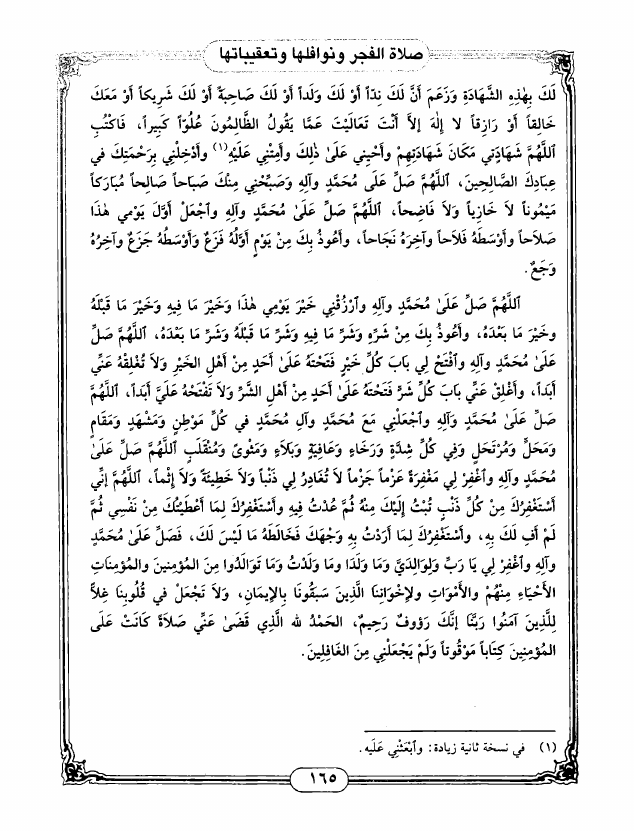 صلاة الفجر ونوافلها وتعقيباتها
لَكَ بِهٰذِهِ الشَّهَادَةِ وَزَعَمَ أَنَّ لَكَ نِدّاً أَوْ لَكَ وَلَداً أَوْ لَكَ صَاحِبَةً أَوْ لَكَ شَرِيكاً أَوْ مَعَكَ
خَالِقاً أَوْ رَازِقاً لا إِلٰهَ إِلاَّ أَنْتَ تَعَالَيْتَ عَمَّا يَقُولُ الظَّالِمُونَ عُلُوّاً كَبِيراً، فَاكْتُبِ
ٱللَّهُمَّ شَهَادَتِي مَكَانَ شَهَادَتِهِمْ وَأَحْيِنِي عَلَىٰ ذٰلِكَ وَأَمِتْنِي عَلَيْهِ(١) وَأَدْخِلْنِي بِرَحْمَتِكَ في
عِبَادِكَ الصَّالِحِينَ، ٱللَّهُمَّ صَلِّ عَلَى مُحَمَّدٍ وَآلِهِ وَصَبِّحْنِي مِنْكَ صَبَاحاً صَالِحاً مُبَارَكاً
مَيْمُوناً لاَ خَازِياً وَلاَ فَاضِحاً، ٱللَّهُمَّ صَلِّ عَلَىٰ مُحَمَّدٍ وَآلِهِ وٱجْعَلْ أَوَّلَ يَوْمِي هٰذَا
صَلاَحاً وَأَوْسَطَهُ فَلاَحاً وآخِرَهُ نَجَاحاً، وَأَعُوذُ بِكَ مِنْ يَوْمٍ أَوَّلُهُ فَزَعٌ وَأَوْسَطُهُ جَزَعٌ وَآخِرُهُ
وَجَعٌ.
ٱللَّهُمَّ صَلِّ عَلَىٰ مُحَمَّدٍ وَآلِهِ وٱرْزُقْنِي خَيْرَ يَوْمِي هٰذَا وَخَيْرَ مَا فِيهِ وَخَيْرَ مَا قَبْلَهُ
وخَيْرَ مَا بَعْدَهُ، وأَعُوذُ بِكَ مِنْ شَرِّهِ وَشَرِّ مَا فِيهِ وَشَرِّ مَا قَبْلَهُ وَشَرِّ مَا بَعْدَهُ، ٱللَّهُمَّ صَلِّ
عَلىٰ مُحَمَّدٍ وَآلِهِ وٱفْتَحْ لِي بَابَ كُلِّ خَيْرٍ فَتَحْتَهُ عَلَىٰ أَحَدٍ مِنْ أَهْلِ الخَيْرِ وَلاَ تُغْلِقْهُ عَنِّي
أَبَداً، وَأَغْلِقْ عَنِّي بَابَ كُلِّ شَرٍّ فَتَحْتَهُ عَلَىٰ أَحَدٍ مِنْ أَهْلِ الشَّرِّ وَلاَ تَفْتَحْهُ عَلَيَّ أَبَداً، ٱللَّهُمَّ
صَلِّ عَلَىٰ مُحَمَّدٍ وَآلِهِ وٱجْعَلْنِي مَعَ مُحَمَّدٍ وَآلِ مُحَمَّدٍ في كُلِّ مَوْطِنٍ وَمَشْهَدٍ وَمَقَامٍ
وَمَحَلٍّ وَمُرْتَحَلٍ وَفِي كُلِّ شِدَّةٍ وَرَخَاءٍ وَعَافِيَةٍ وَبَلاَءٍ وَمَثْوىً وَمُنْقَلَبٍ ٱللَّهُمَّ صَلِّ عَلَىٰ
مُحَمَّدٍ وَآلِهِ وٱغْفِرْ لِي مَغْفِرَةً عَزْماً جَزْماً لاَ تُغَادِرُ لِي ذَنْباً وَلاَ خَطِيئَةً وَلاَ إِثْماً، ٱللَّهُمَّ إِنِّي
أَسْتَغْفِرُكَ مِنْ كُلِّ ذَنْبٍ تُبْتُ إِلَيْكَ مِنْهُ ثُمَّ عُدْتُ فِيهِ وَأَسْتَغْفِرُكَ لِمَا أَعْطَيْتُكَ مِنْ نَفْسِي ثُمَّ
لَمْ أَفِ لَكَ بِهِ، وَأَسْتَغْفِرُكَ لِمَا أَرَدْتُ بِهِ وَجْهَكَ فَخَالَطَهُ مَا لَيْسَ لَكَ، فَصَلِّ عَلَىٰ مُحَمَّدٍ
وآلِهِ وٱغْفِرْ لِي يَا رَبِّ وَلِوَالِدَيَّ وَمَا وَلَدَا ومَا وَلَدْتُ وَمَا تَوَالَدُوا مِنَ المُؤمِنينَ والمُؤْمِنَاتِ
الأَحْيَاءِ مِنْهُمْ وَالأَمْوَاتِ ولإِخْوَانِنَا الَّذِينَ سَبَقُونَا بِالإِيمَانِ، وَلاَ تَجْعَلْ في قُلُوبِنَا غِلاًّ
لِلَّذِينَ آمَنُوا رَبَّنَا إِنَّكَ رَؤُوفٌ رَحِيمٌ، الحَمْدُ للهِ الَّذِي قَضَىٰ عَنِّي صَلاَةً كَانَتْ عَلَى
المُؤْمِنِينَ كِتَاباً مَوْقُوتاً وَلَمْ يَجْعَلْنِي مِنَ الغَافِلِينَ.
(١) في نسخة ثانية زيادة: وٱبْعَثْنِي عَلَيْه.
١٦٥